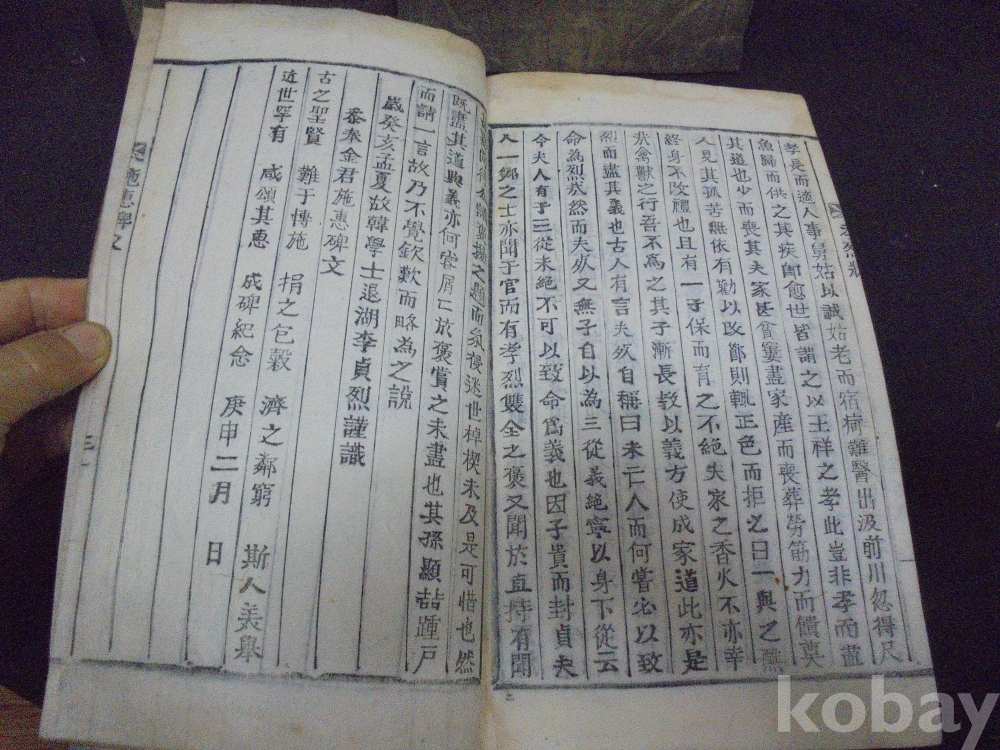 孝是而適人事舅姑以誠姑老而宿痾難醫出汲前川忽得尺
魚歸而供之其疾卽愈世皆謂之以王祥之孝此豈非孝而盡
其道也少而喪其夫家甚貧窶盡家産而喪葬勞筋力而饋奠
人見其孤苦無依有勸以改鄰則輒正色而拒之曰一與之醮
終身不改禮也且有一子保而育之不絶夫家之香火不亦幸
㢤禽獸之行吾不爲之其子漸長敎以義方使成家道此亦是
烈而盡其義也古人有言夫歿自稱曰未亡人而何嘗必以致
命為烈㢤然而夫歿又無子自以為三從義絶寧以身下從云
今夫人有子三從未絶不可以致命爲義也因子貴而封貞夫
人一鄕之士亦聞于官而有孝烈雙全之褒又聞於直持有聞
之題而氛祲迷世棹楔未及是可惜也然
既盡其道與義亦何嘗屑〻於褒賞之未盡也其孫顯喆踵戶
而請一言故乃不覺欽歎而略為之說
歲癸亥孟夏故韓學士退湖李貞烈謹識
泰奉金君施惠碑文
古之聖賢 難于博施 捐之包穀 濟之鄰窮
近世罕有 咸頌其惠 成碑紀念 斯人美擧
庚申二月 日
施惠碑文
kobay